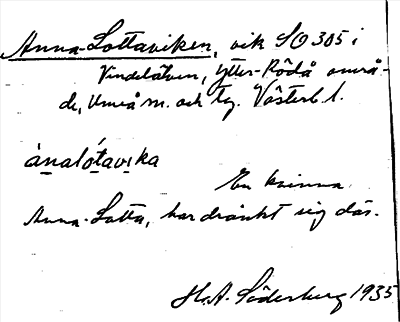 Anna-Lottaviken, vik SO 305 i
Vindelälven, Ytter-Rödå områ-
de, Umeå m. och tg. Västerb. l.
ànalótavika
En kvinna
Anna-Lotta, har dränkt sig där.
H. A. Söderberg 1935